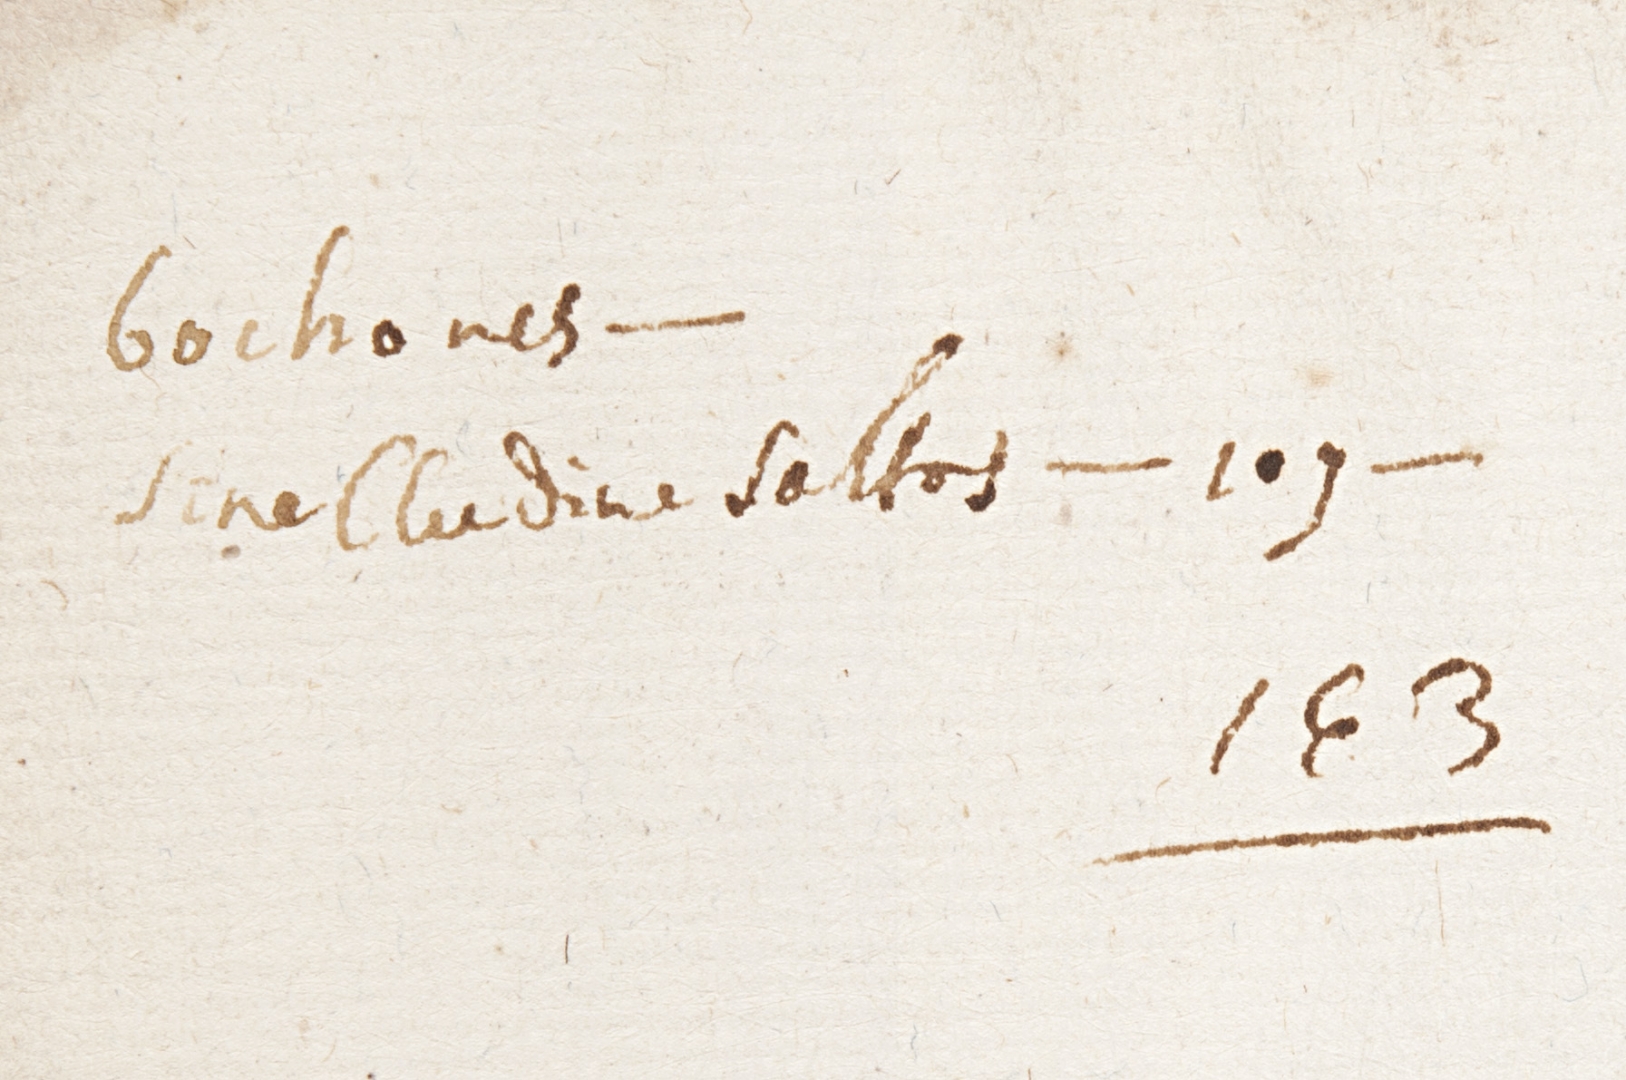 bochones —
sine Cleudine Saltos — 109 —
163